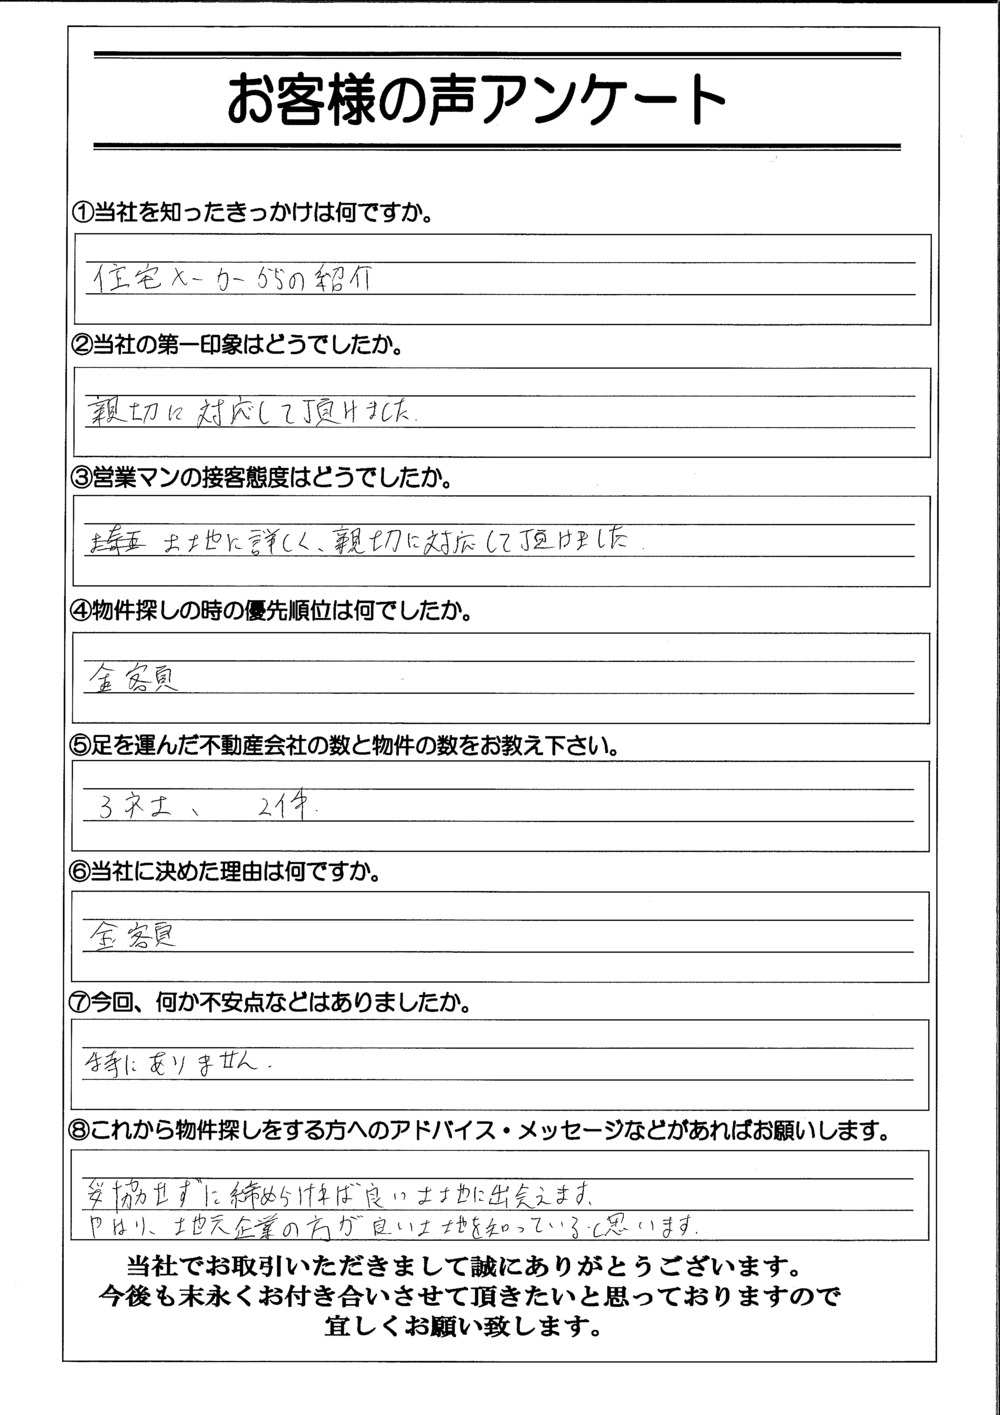 お客様の声アンケート
①当社を知ったきっかけは何ですか。
住宅メーカーからの紹介
②当社の第一印象はどうでしたか。
親切に対応して頂けました.
③営業マンの接客態度はどうでしたか。
土地に詳しく、親切に対応して頂けました.
④物件探しの時の優先順位は何でしたか。
金額
⑤足を運んだ不動産会社の数と物件の数をお教え下さい。
3社、 2件.
⑥当社に決めた理由は何ですか。
金額
⑦今回、何か不安点などはありましたか。
特にありません.
⑧これから物件探しをする方へのアドバイス・メッセージなどがあればお願いします。
妥協せずに締めらければ良い土地に出会えます.
やはり、地元企業の方が良い土地を知っていると思います.
当社でお取引いただきまして誠にありがとうございます。
今後も末永くお付き合いさせて頂きたいと思っておりますので
宜しくお願い致します。